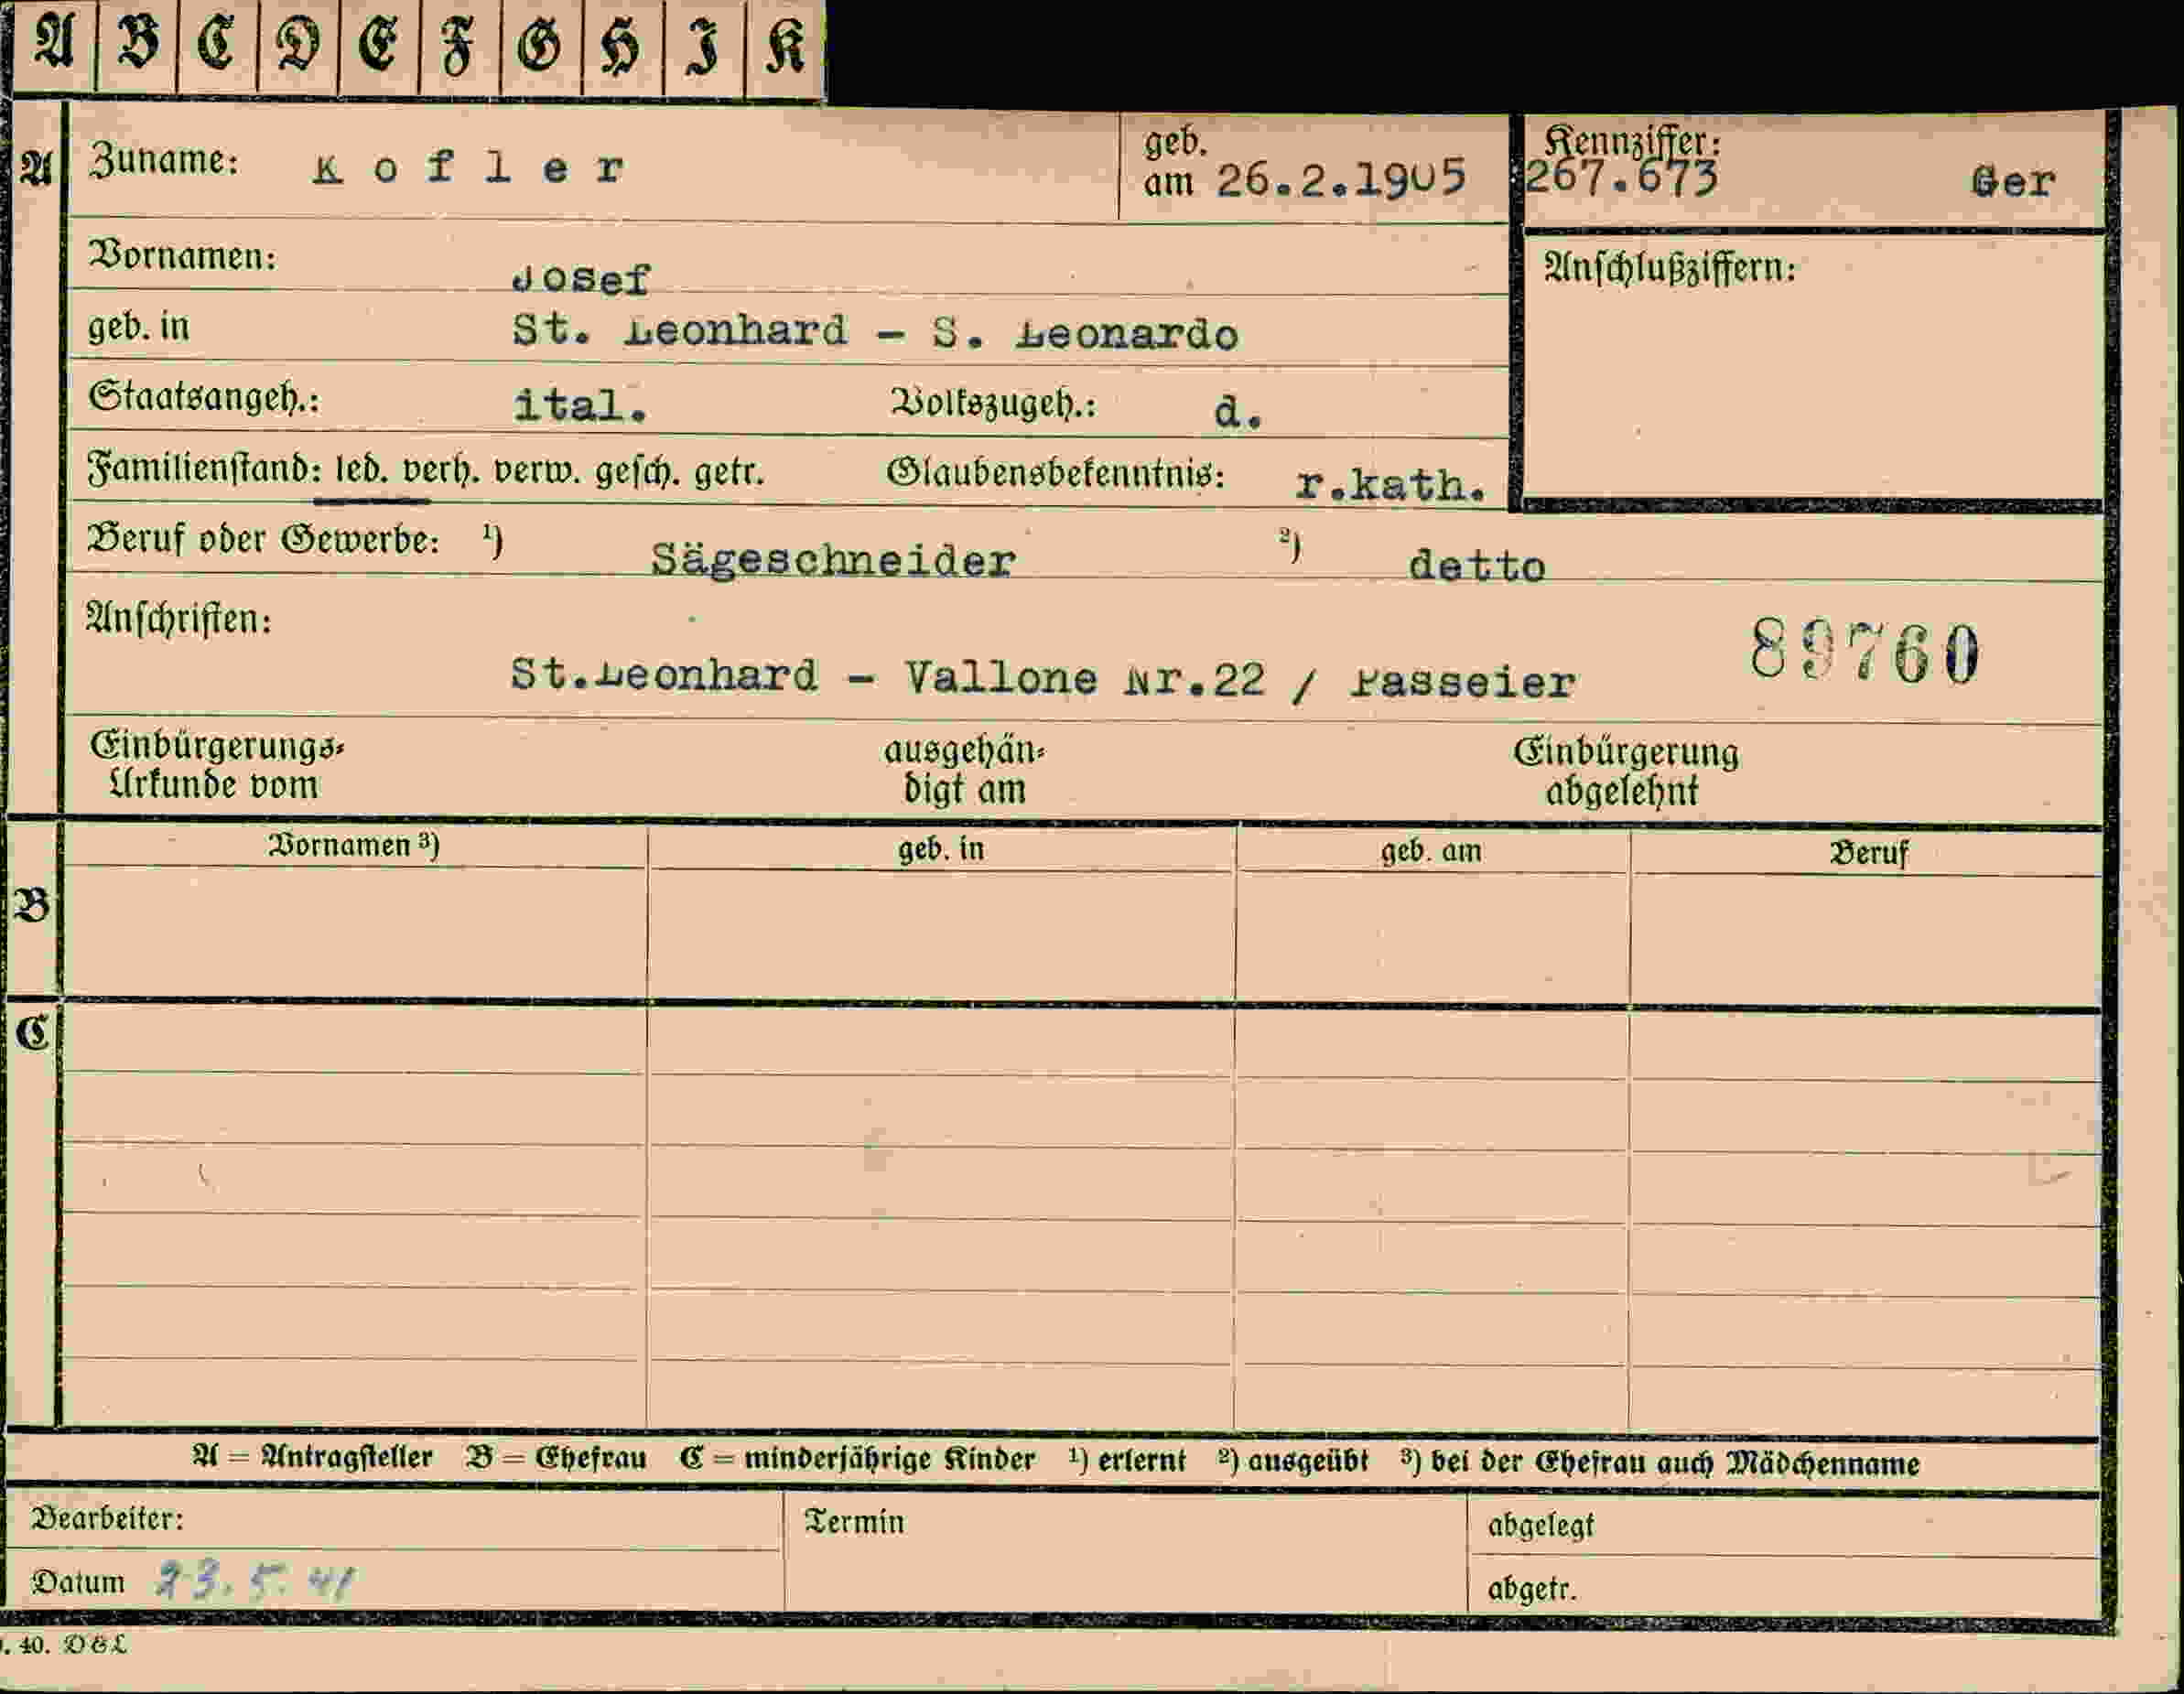 A B C D E F G H I K
A Zuname: Kofler geb. am 26.2.1905 Kennziffer: 267.673 Ger
Vornamen: Josef Anschlußziffern:
geb. in St. Leonhard - S. Leonardo
Staatsangeh.: ital. Volkszugeh.: d.
Familienstand: led. verh. verw. gesch. getr. Glaubensbekenntnis: r.kath.
Beruf oder Gewerbe: ¹) Sägeschneider ²) detto
Anschriften:
St.Leonhard - Vallone Nr.22 / Passeier 89760
Einbürgerungs- ausgehän- Einbürgerung
Urkunde vom digt am abgelehnt
Vornamen ³) geb. in geb. am Beruf
B
C
A = Antragsteller B = Ehefrau C = minderjährige Kinder ¹) erlernt ²) ausgeübt ³) bei der Ehefrau auch Mädchenname
Bearbeiter: Termin abgelegt
Datum 23.5.41 abgetr.
. 40. D&L